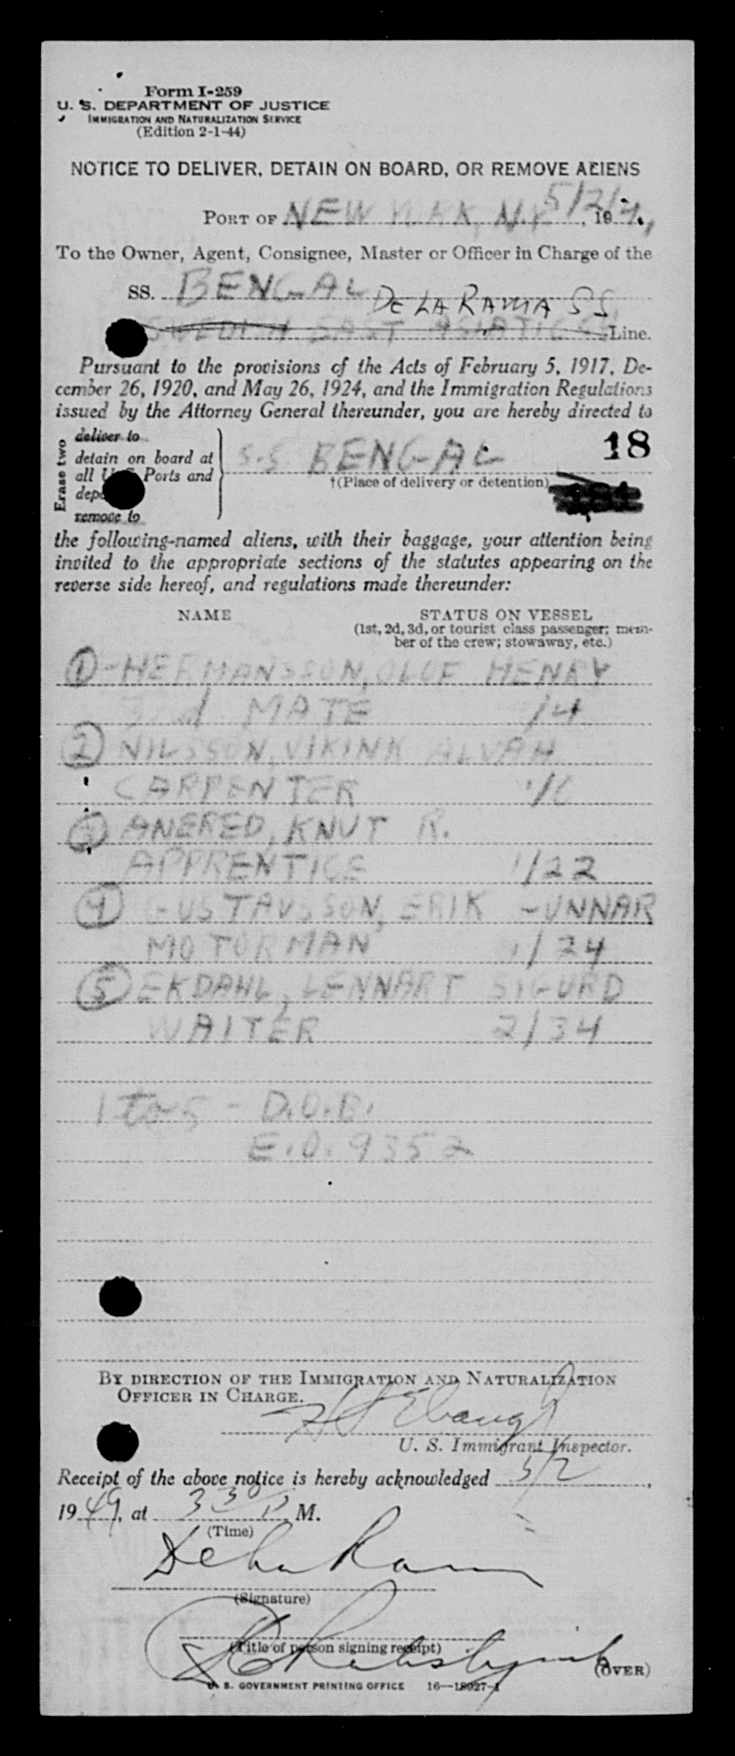 Form I-259
U. S. DEPARTMENT OF JUSTICE
IMMIGRATION AND NATURALIZATION SERVICE
(Edition 2-1-44)
NOTICE TO DELIVER, DETAIN ON BOARD, OR REMOVE ALIENS
PORT OF NEW YORK, N.Y. 5/2/49
To the Owner, Agent, Consignee, Master or Officer in Charge of the
SS. BENGAL
DE LA RAMA SS
SWEDISH EAST ASIATIC Line.
Pursuant to the provisions of the Acts of February 5, 1917, De-
cember 26, 1920, and May 26, 1924, and the Immigration Regulations
issued by the Attorney General thereunder, you are hereby directed to
Erase two
deliver to
detain on board at
all U. S. Ports and
remove to
S.S BENGAL
18
†(Place of delivery or detention)
the following-named aliens, with their baggage, your attention being
invited to the appropriate sections of the statutes appearing on the
reverse side hereof, and regulations made thereunder:
NAME STATUS ON VESSEL
(1st, 2d, 3d, or tourist class passenger; mem-
ber of the crew; stowaway, etc.)
① - HERMANSSON, OLOF HENRY
3rd MATE 1/4
② NILSSON, VIKINK ALVAH
CARPENTER 1/6
③ ANERED, KNUT R.
APPRENTICE 1/22
④ GUSTAVSSON, ERIK GUNNAR
MOTORMAN 1/24
⑤ EKDAHL, LENNART SIGURD
WAITER 2/34
1 to 5 - D.O.B.
E.O. 9352
BY DIRECTION OF THE IMMIGRATION AND NATURALIZATION
OFFICER IN CHARGE.
U. S. Immigrant Inspector.
Receipt of the above notice is hereby acknowledged 5/2,
1949, at 3 30 P. M.
(Time)
De la Rama
(Signature)
(Title of person signing receipt)
(OVER)
U. S. GOVERNMENT PRINTING OFFICE 16—18027-1